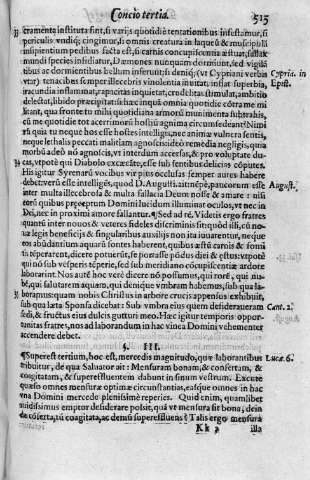 Concio tertia. 515
cramenta instituta sint, si varijs quotidie tentationibus infestamur, si
periculis vndiq; cingimur, si omnis creatura in laqueũ & muscipulã
insipientium pedibus facta est, si carnis concupiscentia æstuat, si fallax
mundi species insidiatur, Dæmones nunquam dormiunt, sed vigilã
tibus ac dormientibus bellum inferunt; si deniq; (vt Cypriani verbis
Cypria. in
Epist.
vtar) tenacibus semper illecebris vinolentia inuitat, inflat superbia,
iracundia inflammat, rapacitas inquietat, crudelitas stimulat, ambitio
delectat, libido præcipitat: si hæc inquã omnia quotidie
liant, qua fronte tu mihi quotidiana armorũ munimenta subtrahis,
cũ me quotidie tot acerrimorũ hostiũ agmina circumsedeant? Nimi
rũ quia tu neque hos esse hostes intelligis, nec animæ vulnera sentis,
neque lethalis peccati malitiam agnoscis: ideò remedia negligis, quia
morbũ adeò nõ agnoscis, vt interdum accersas, & pro voluptate du-
cas, vtpotè qui Diabolo excæcâte, esse sub sentibus delicias cõputes.
His igitur Syrenarũ vocibus vir pius occlusas semper aures habere
debet: verũ esse intelligens, quod D. August. ait: nẽpè, paucorum esse
August.
inter multa illecebrosa & multa fallacia Deum nosse & amare: nisi
eorũ quibus præceptum Domini lucidum illuminat oculos, vt nec in
Dei, nec in proximi amore fallantur. ¶ Sed ad rẽ. Videtis ergo fratres
quantũ inter nouos & veteres fideles discriminis sit: quòd illi, cũ no-
uæ legis beneficijs & singularibus auxilijs non ita iuuarentur, neque
eos abũdantium aquarũ fontes haberent, quibus æstũ carnis & fomi
tis tẽperarent, dicere potuerũt, se portasse põdus diei & æstus: vtpotè
qui nõ sub vesperis tẽperie, sed sub meridiano cõcupiscentiæ ardore
laborarint. Nos autẽ hoc verè dicere nõ possumus, qui rorẽ, qui nu-
bẽ, qui salutarem aquam, qui denique vmbram habemus, sub qua la-
boramus: quam nobis Christus in arbore crucis appensus exhibuit,
sub qua læta Sponsa dicebat: Sub vmbra eius quem desideraueram
Cant. 2.
sedi, & fructus eius dulcis gutturi meo. Hæc igitur temporis oppor-
tunitas fratres, nos ad laborandum in hac vinea Domini vehementer
accendere debet.
§. III.
¶ Superest tertium, hoc est, mercedis magnitudo, quæ laborantibus
Lucæ 6.
tribuitur, de qua Saluator ait: Mensuram bonam, & confertam, &
coagitatam, & superefluentem dabunt in sinum vestrum. Excute
quæso omnes mensuræ optimæ circunstantias, easque omnes in hac
vna Domini mercede plenissimè reperies. Quid enim, quamlibet
auidissimus emptor desiderare posset, quã vt mensura sit bona, dein
de cõferta, tũ coagitata, ac demũ superefluens? Talis ergo mensura
Kk
illa